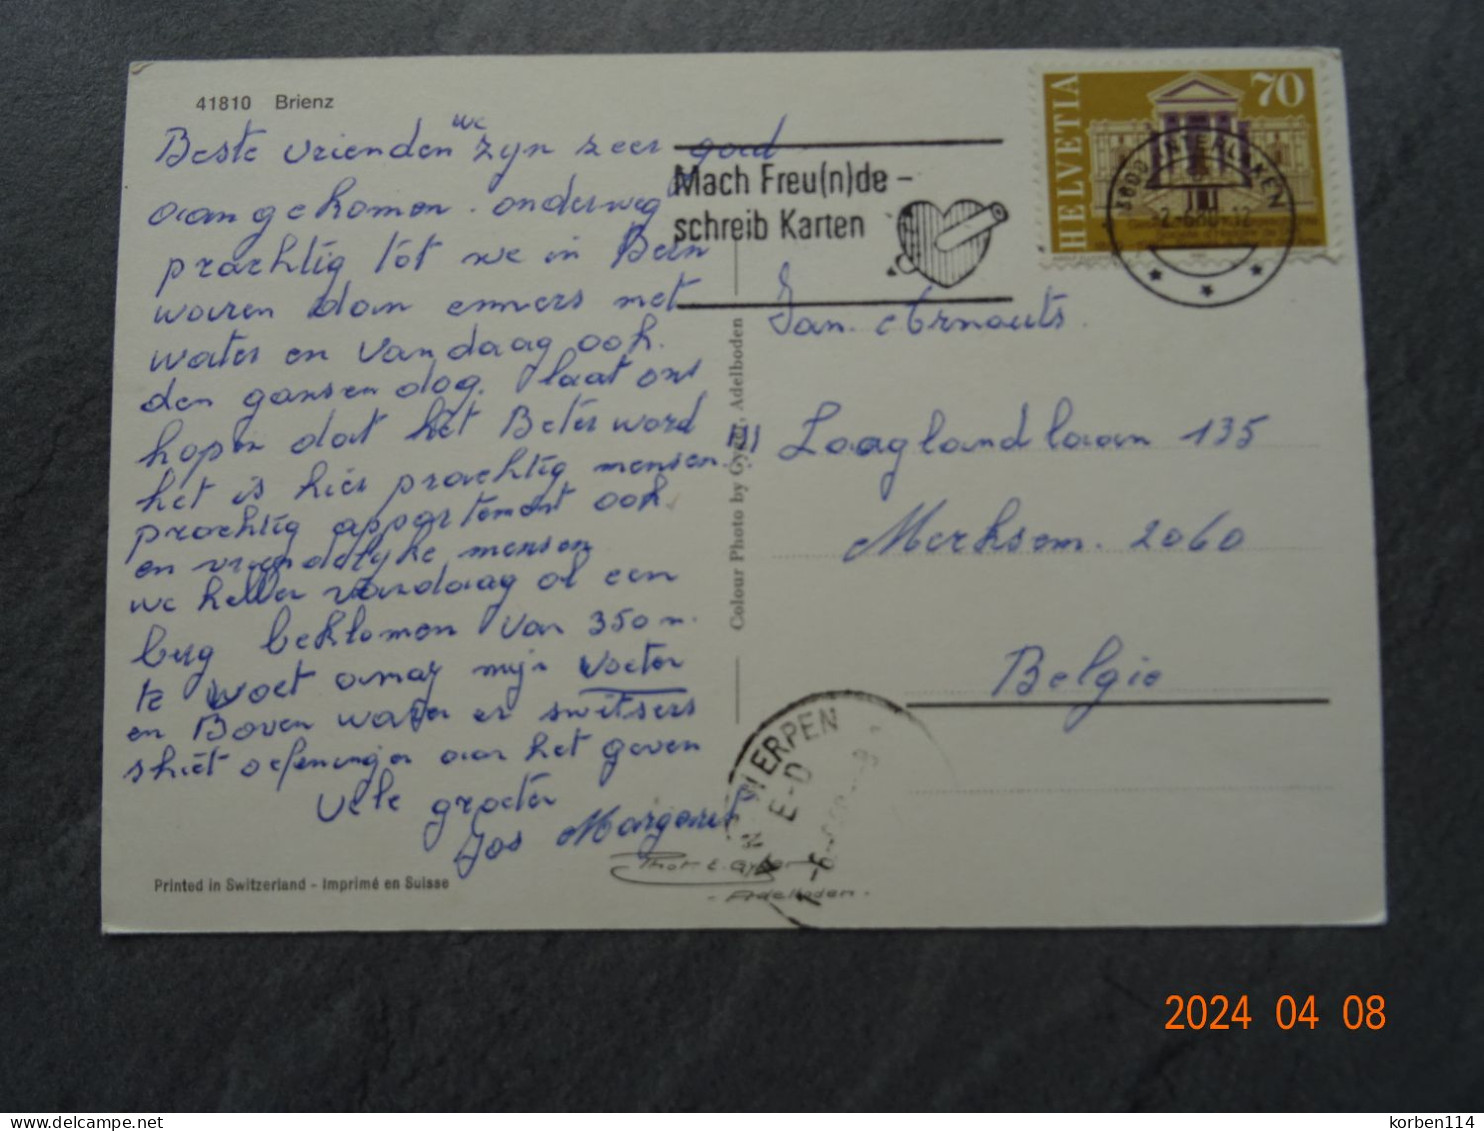 41810 Brienz
we
Beste vrienden zyn zeer goed
aangekomen. onderweg
prachtig tot we in Bern
waren dan emmers met
water en vandaag ook.
den gansen dag. laat ons
hopen dat het Beter word
het is hier prachtig mensen !!!
prachtig appartement ook.
en vriendelyke mensen
we hebben vandaag al een
berg beklomen van 350 m.
te voet amaj mijn voeten
en Boven waren er switsers
shiet oefeningen aan het geven
vele groeten
Jos Margaret
Printed in Switzerland - Imprimé en Suisse
Colour Photo by Gyger, Adelboden
Mach Freu(n)de -
schreib Karten
HELVETIA
70
3800 INTERLAKEN
Jan. Arnouts.
Laaglandlaan 135
Merksem. 2060
Belgie
ANTWERPEN
E-D
Phot. E. Gyger
- Adelboden -
2024 04 08
delcampe.net
korben114